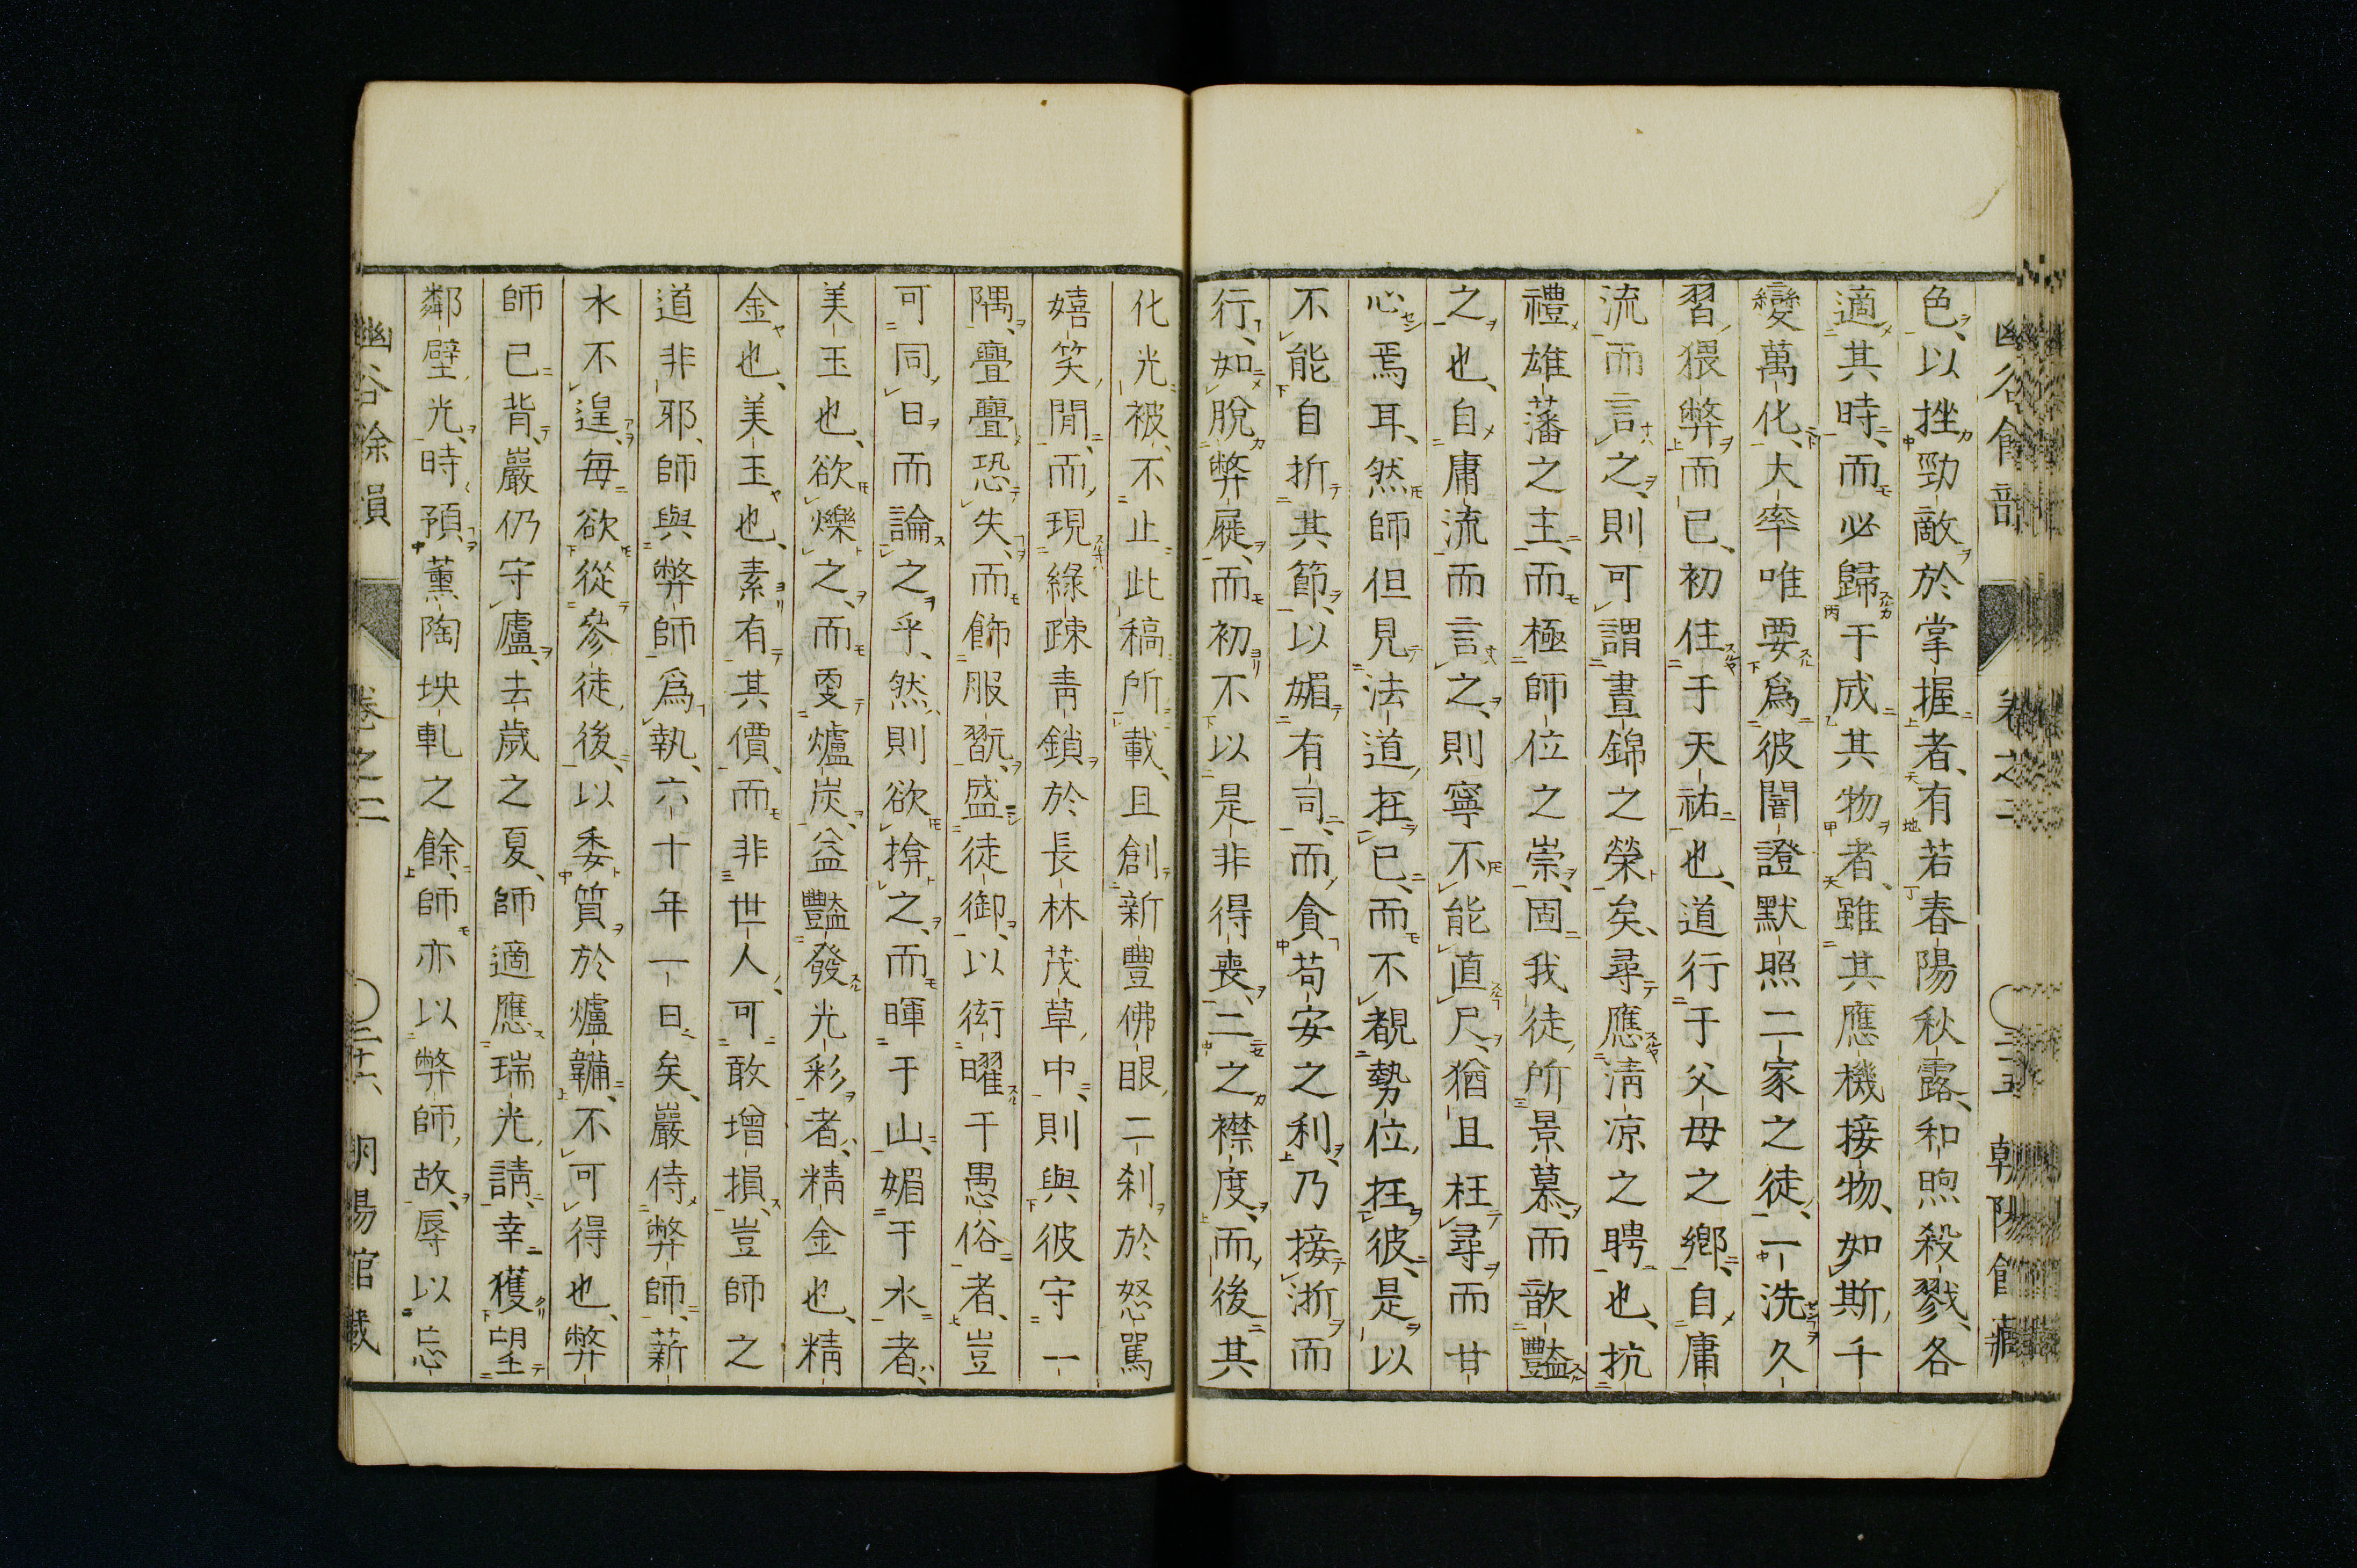 色、以挫勁敵於掌握者、有若春陽秋露、和煦殺戮、各
適其時、而必歸于成其物者、雖其應機接物、如斯千
變萬化、大率唯要爲彼闇證默照二家之徒、一洗久
習猥弊而已、初住于天祐也、道行于父母之鄉、自庸
流而言之、則可謂晝錦之榮矣、尋應淸凉之聘也、抗
禮雄藩之主、而極師位之崇、固我徒所景慕、而歆豔
之也、自庸流而言之、則寧不能直尺、猶且枉尋而甘
心焉耳、然師但見法道在己、而不覩勢位在彼、是以
不能自折其節、以媚有司、而貪苟安之利、乃接淅而
行、如脫弊屣、而初不以是非得喪、二之襟度、而後其
化光被、不止此稿所載、且創新豐佛眼二刹於怒罵
嬉笑閒、而現綠疎靑鎖於長林茂草中、則與彼守一
隅、亹亹恐失、而飾服翫、盛徒御、以衒曜于愚俗者、豈
可同日而論之乎、然則欲揜之、而暉于山、媚于水者、
美玉也、欲爍之、而雯爐炭、益豔發光彩者、精金也、精
金也、美玉也、素有其價、而非世人可敢增損、豈師之
道非邪、師與弊師爲執、六十年一日矣、巖侍弊師、薪
水不遑、每欲從參徒後、以委質於爐鞴、不可得也、弊
師已背、巖仍守廬、去歲之夏、師適應瑞光請、幸獲望
鄰壁光、時預薰陶坱軋之餘、師亦以弊師故、辱以忘
幽谷餘韻 卷之二 ○二十六 朝陽館藏